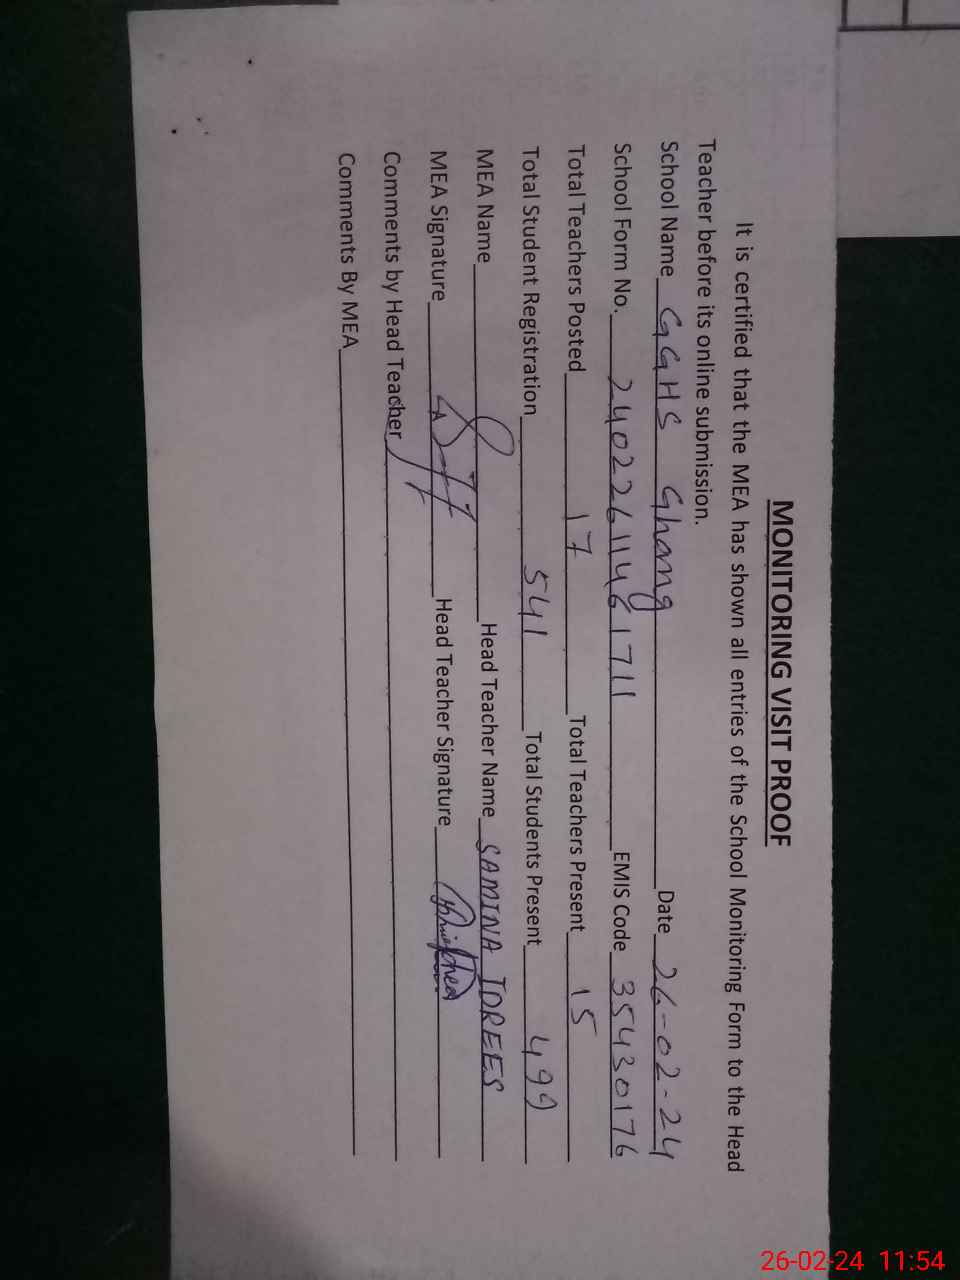 MONITORING VISIT PROOF
It is certified that the MEA has shown all entries of the School Monitoring Form to the Head
Teacher before its online submission.
School Name GGHS Ghang Date 26-02-24
School Form No. 24022611461711 EMIS Code 35430176
Total Teachers Posted 17 Total Teachers Present 15
Total Student Registration 541 Total Students Present 499
MEA Name Head Teacher Name SAMINA IDREES
MEA Signature Head Teacher Signature
Comments by Head Teacher
Comments By MEA
26-02-24 11:54